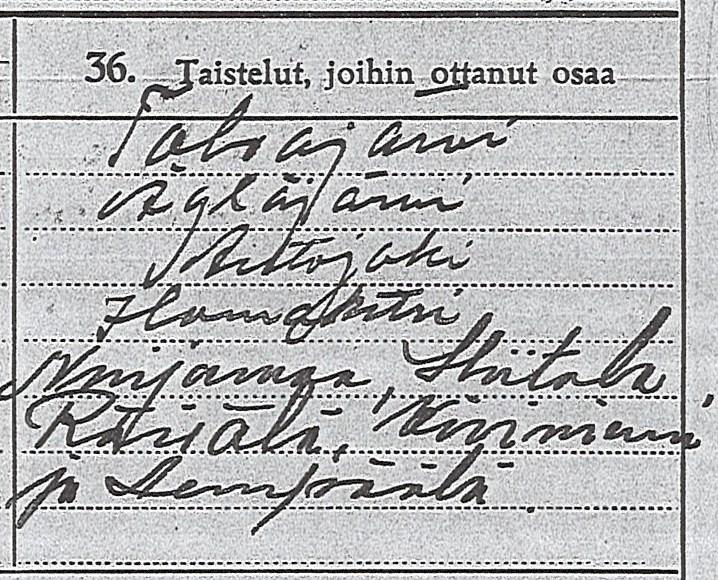 36. Taistelut, joihin ottanut osaa
Tolvajärvi
Ägläjärvi
Aittojoki
Ilomantsi
Nurjamaa, Hiitola,
Räisälä, Kiviniemi
ja Lempäälä.